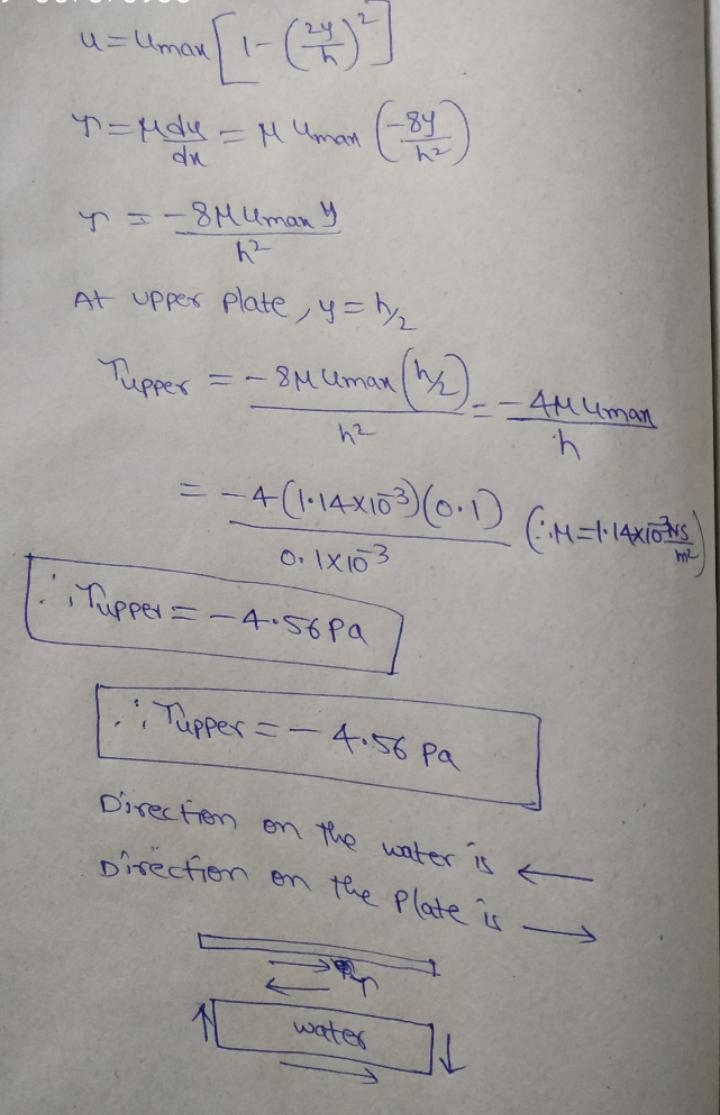 u = Umax [1 - (2y/h)²]
τ = μ du/dx = μ Umax (-8y/h²)
τ = -8μUmax y/h²
At upper plate, y = h/2
Tupper = -8μUmax (h/2)/h² = -4μUmax/h
= -4(1.14×10⁻³)(0.1)/0.1×10⁻³ (∵ μ = 1.14×10⁻³ NS/m²)
∴ Tupper = -4.56 Pa
∴ Tupper = -4.56 Pa
Direction on the water is ←
Direction on the Plate is →
τ
water